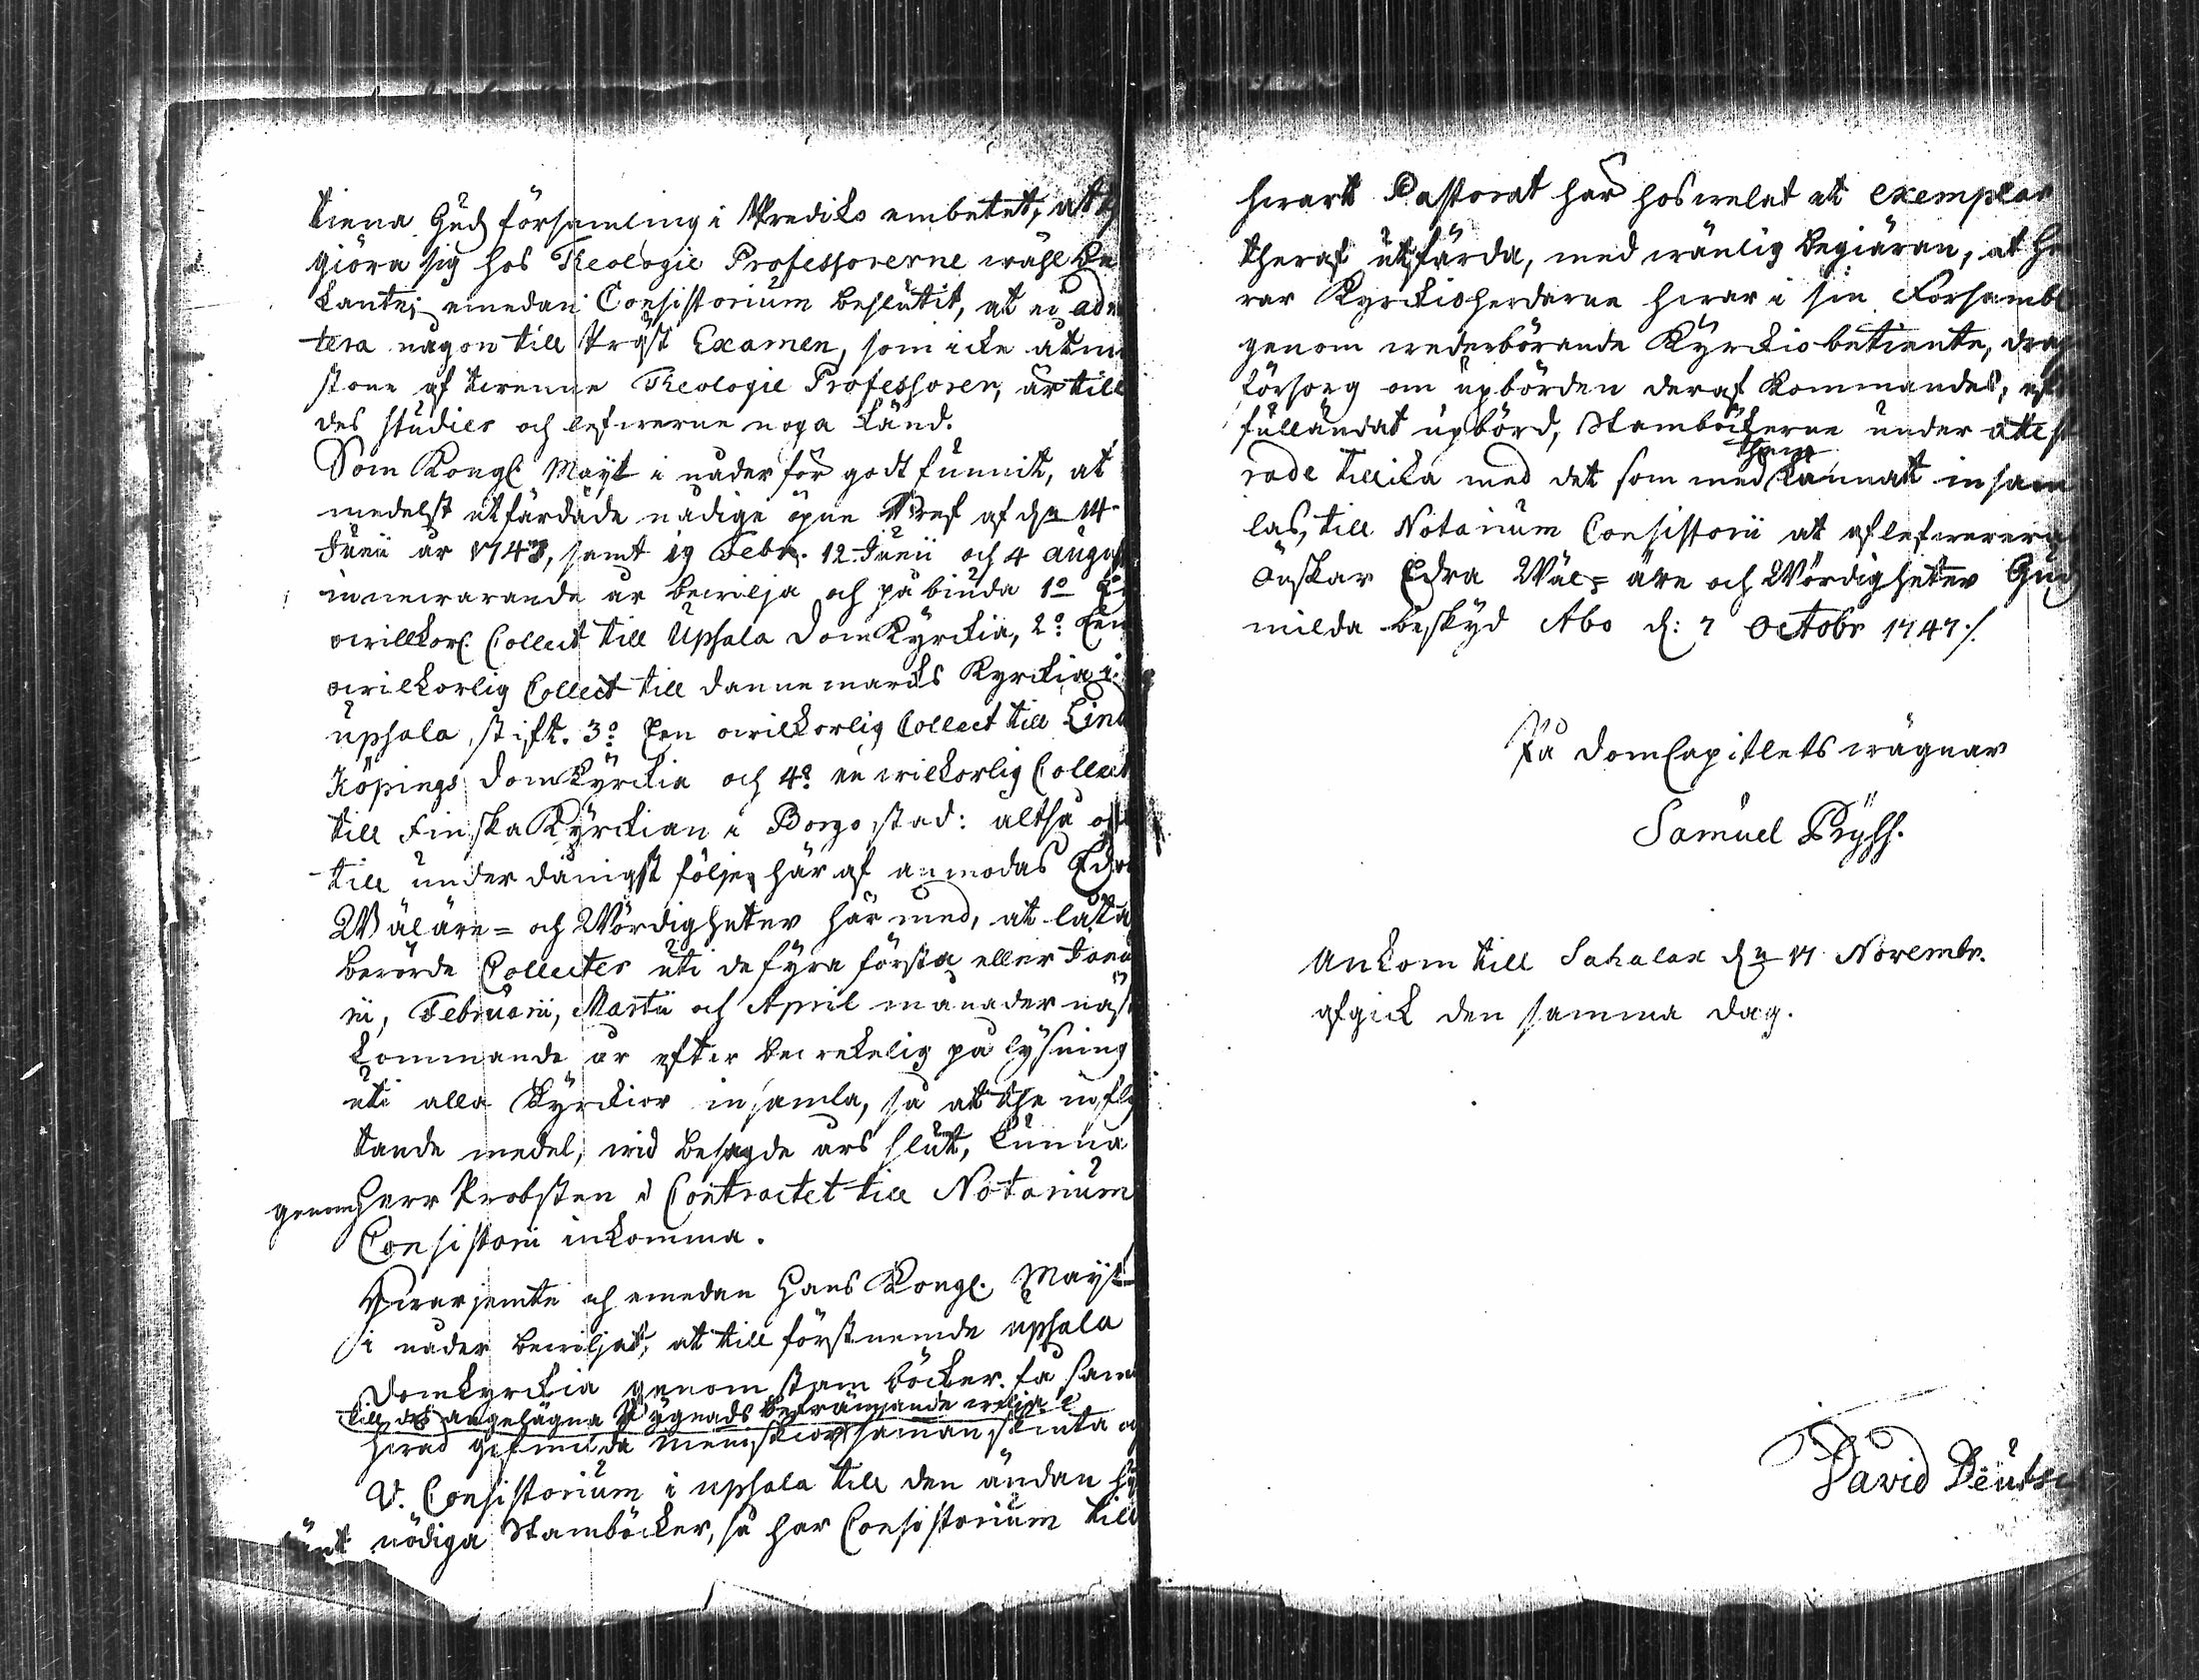 tiena Guds församling i Prediko embetet, att
giöra sig hos Theologie Professorerne wähl be
kante; emedan Consistorium beslutit, at ej adm
tera någon till Präst Examen, som icke åtm
stone af twenne Theologie Professorer, är till
des studier och lefwerne noga känd.
Som Kongl Mayt i nåder för godt funnit, at
medelst utfärdade nådige öpne Bref af d. 14
Junii år 1743, samt 19 Febr. 12 Junii och 4 august
innewarande år bewilja och påbiuda 1o En
owillkorl. Collect till Upsala DomKyrckia, 2o Een
owilkorlig Collect till Dannemarks Kyrckia i
upsala stift. 3o Een owilkorlig Collect till Lind
Köpings DomKyrckia och 4o en wilkorlig Collect
till Finska Kyrckian i Borgo stad: altså
till underdånigst följe här af anmodas Edra
Wäläre= och Wördigheter här med, at låtta
berörde Collecter uti de fyra första eller Janu
rii, Februarii, Martii och April månader näst
kommande år efter bewekelig pålysning
uti alla Kyrckior insamla, så att the influ
tande medel, wid besagde års slut, kunna
genom Herr Probsten i Contractet till Notarium
Consistorii inkomma.
Hwarjemte och emedan Hans Kongl. Mayt
i nåder bewiljat, at till förstnemde upsala
Domkyrckia genom stamböcker få sam
till des angelägna Bygnads befrämjande wilja
hwad gifmilda Menniskior sammanskiuta
V. Consistorium i upsala till den ändan
nödiga Stamböcker, så har Consistorium till
hwart Pastorat här hos welat et exemplar
theraf utfärda, med wänlig begiäran, at Her
rar Kyrckioherdarne hwar i sin Försambl
genom wederbörande Kyrckiobetiente, drag
försorg om upbörden deraf kommandes,
fulländat upbörd, Stamböckerne under attest
them
rade tillika med det som med kunnat insam
las, till Notarium Consistorii at aflefwerera
Önskar Edra Wäl= äre och Wördigheter Guds
milda beskyd Åbo d: 7 Octobr 1747 ./.
På DomCapitlets wägnar
Samuel Pryss.
Ankom till Sahalax d. 17 Novembr.
afgick den samma dag.
David Deutsch